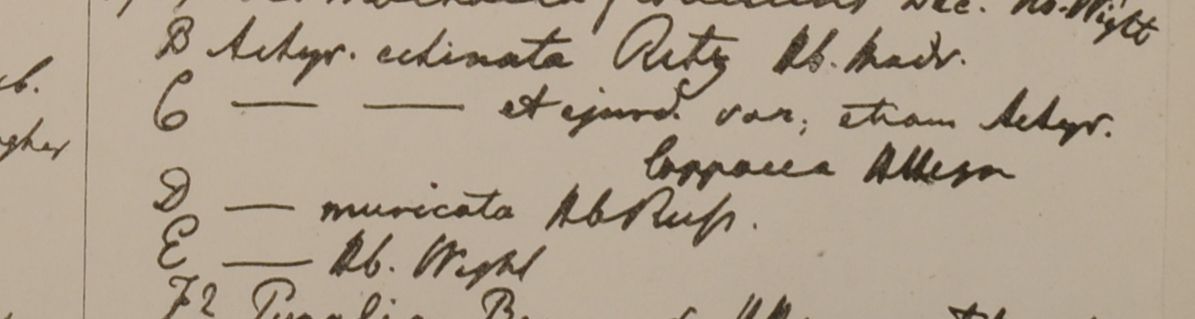 Hb. Wight
B Achyr. echinata Retz Hb. Madr.
C — — et ejusd. var; etiam Achyr.
lappacea Atten
D — muricata Hb Russ.
E — Hb. Wight
F2